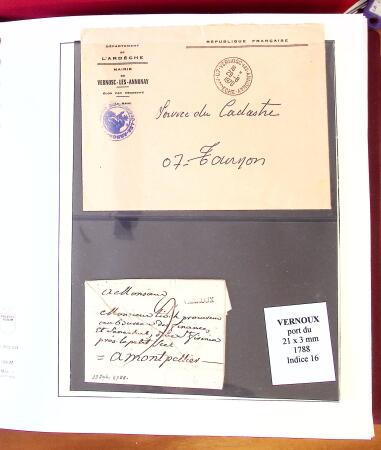 DÉPARTEMENT
DE
L'ARDÈCHE
MAIRIE
DE
VERNOSC-LÈS-ANNONAY
RÉPUBLIQUE FRANÇAISE
Service du Cadastre
07-Tournon
A Monsieur
VERNOUX
Monsieur procureur
au Bureau des finances
près le petit Scel
= a montpellier =
1788.
VERNOUX
port du
21 x 3 mm
1788
Indice 16